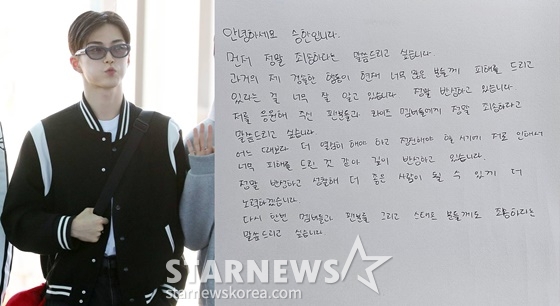 안녕하세요 승한입니다.
먼저 정말 죄송하다는 말씀드리고 싶습니다.
과거의 제 경솔한 행동이 현재 너무 많은 분들께 피해를 드리고
있다는 걸 너무 잘 알고 있습니다 정말 반성하고 있습니다
저를 응원해 주신 팬분들과 라이즈 멤버들에게 정말 죄송하다고
말씀드리고 싶습니다
어느 때보다 더 열심히 해야 하고 집중해야 할 시기에 저로 인해서
너무 피해를 드린 것 같아 깊이 반성하고 있습니다.
정말 반성하고 성찰해 더 좋은 사람이 될 수 있게 더
노력하겠습니다
다시 한번 멤버들과 팬분들 그리고 스태프 분들께도 죄송하다는
말씀드리고 싶습니다
STARNEWS
starnewskorea.com